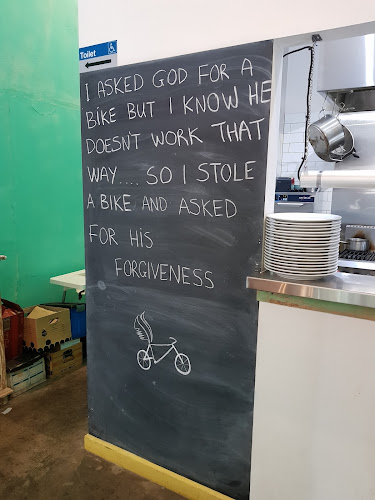 Toilet
I ASKED GOD FOR A
BIKE BUT I KNOW HE
DOESN'T WORK THAT
WAY.... SO I STOLE
A BIKE AND ASKED
FOR HIS
FORGIVENESS